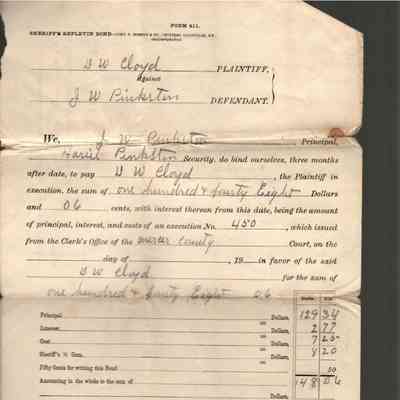 FORM 411.
SHERIFF'S REPLEVIN BOND—
D W Cloyd PLAINTIFF,
Against
J W Pinkston DEFENDANT.
We, J W Pinkston Principal,
Pinkston Security, do bind ourselves, three months
after date, to pay D W Cloyd , the Plaintiff in
execution, the sum of one hundred & fourty Eight Dollars
and 06 cents, with interest thereon from this date, being the amount
of principal, interest, and costs of an execution No. 450 , which issued
from the Clerk's Office of the mercer County Court, on the
day of , 19 in favor of the said
D W Cloyd for the sum of
one hundred & fourty Eight 06
Principal Dollars, 129 34
Interest Dollars, 2 77
Cost Dollars, 7 25
Sheriff's ½ Com. Dollars, 8 20
Fifty Cents for writing this Bond 50
Amounting in the whole to the sum of Dollars, 148 06